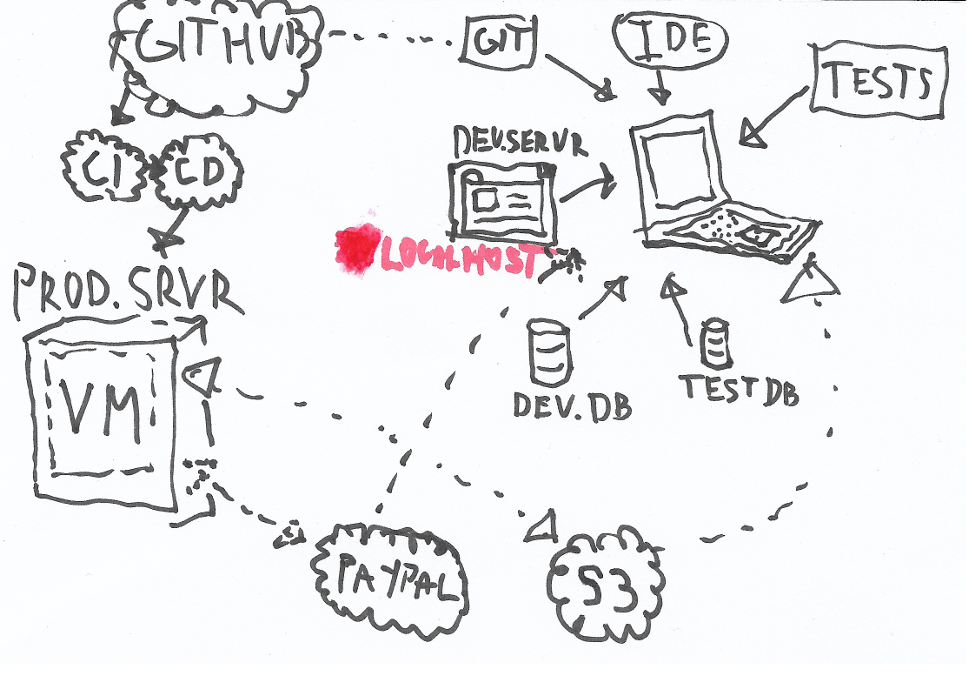 GITHUB
GIT
IDE
TESTS
CI
CD
DEV.SERVR
LOCALHOST
PROD.SRVR
VM
DEV.DB
TEST DB
PAYPAL
S3